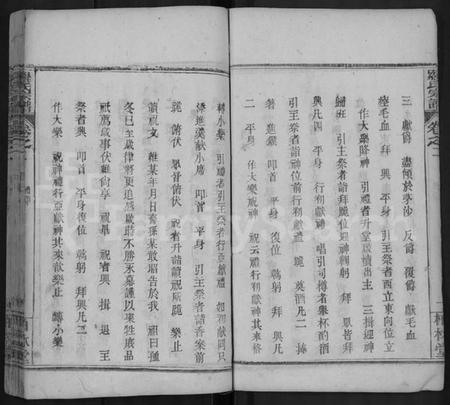 羅氏宗譜 卷之二
三 獻爵 盡傾於茅沙 反爵 復爵 獻毛血
瘞毛血 拜 興 平身 引主祭者西立東向位立
作大樂 降神 引禮者升堂啟櫝出主 三揖迎神
歸班 引主祭者詣拜跪位迎神鞠躬 拜 眾皆拜
興凡四 平身 行初獻禮 唱引司樽者舉杯酌酒
引主祭者詣神位前行初獻禮 跪 奠酒凡二 揍
著 進羹 叩首 平身 復位 鞠躬 拜 興凡
二 平身 作大樂威神 祝云禮行初獻神其來格
轉小樂 引主祭者行亞獻禮 如初獻同只
添進羹獻小席 叩首 平身 引主祭者詣香案前
跪 俯伏 眾皆俯伏 祝者升詣讀祝所跪 樂止
讀祝文 維某年月日裔孫某敢昭告於我 祖曰獲
冬巳至歲律將更追感歲時不勝永慕謹以柔牲庶品
祇薦歲事伏維尚享 祝畢 祝者興 揖 退 主
祭者興 叩首 平身 復位 鞠躬 拜興凡二
作大樂 祝神禮行亞獻神其來歆樂止 轉小樂